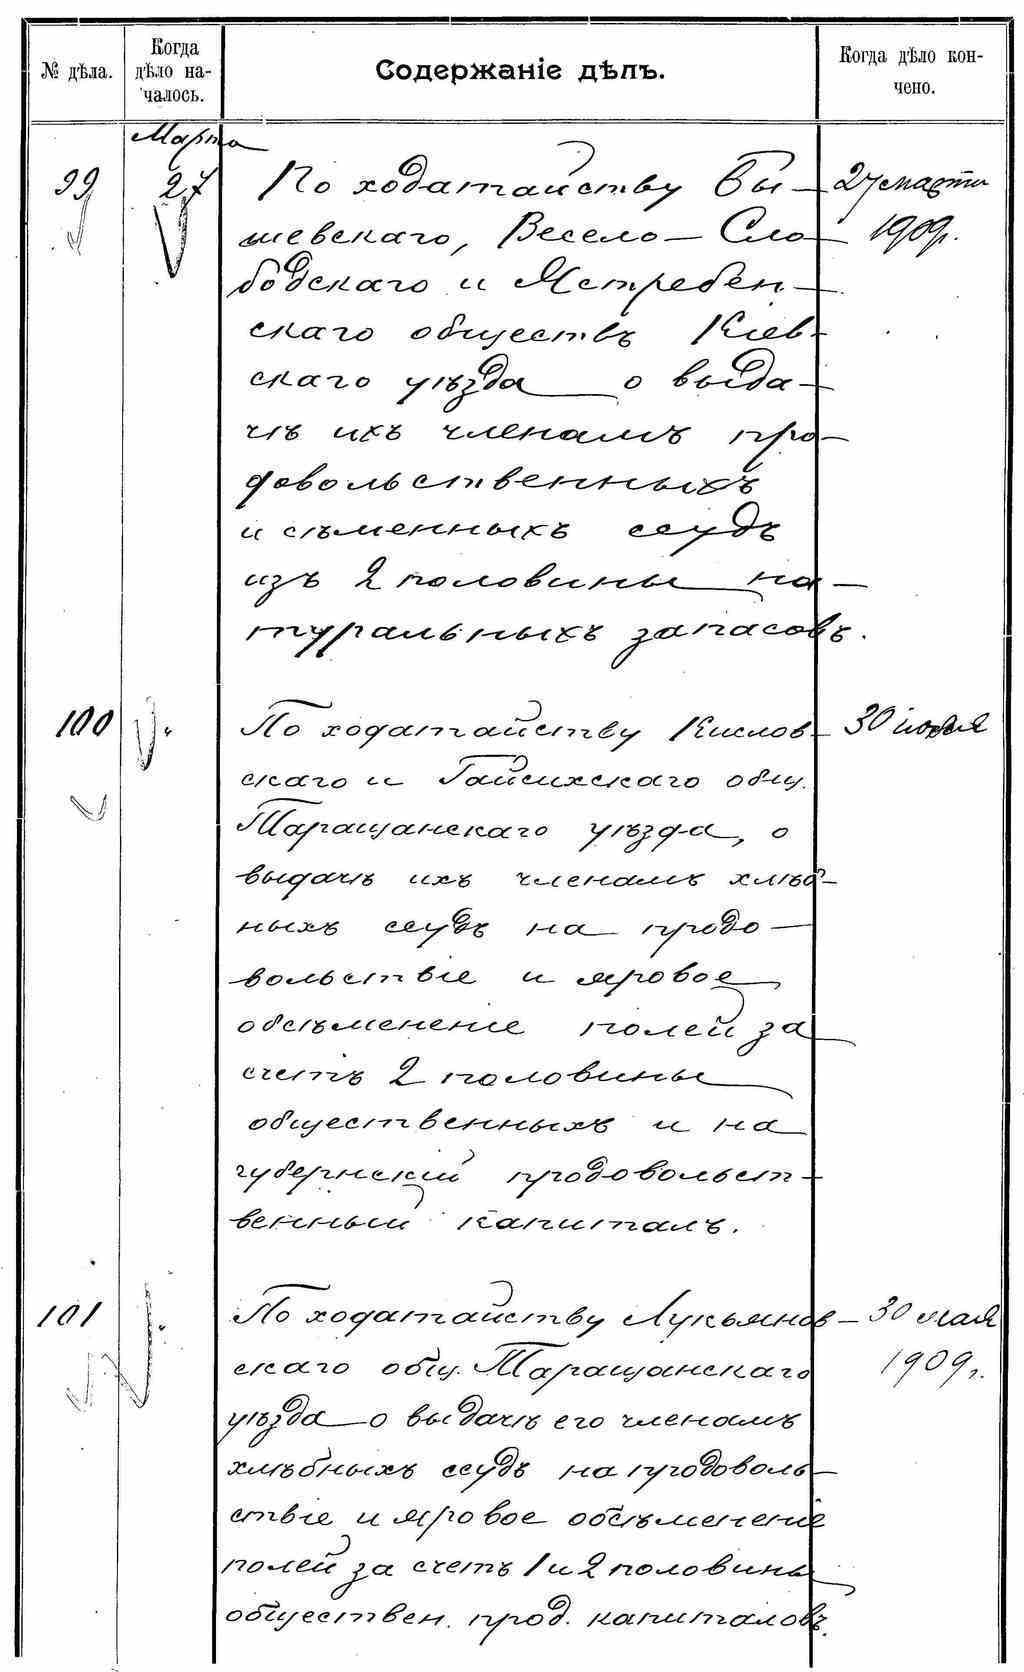 № дѣла.
Когда
дѣло на-
чалось.
Содержаніе дѣлъ.
Когда дѣло кон-
чено.
Марта
99
27
По ходатайству Вы-
шевскаго, Весело-Сло-
бодскаго и Ястребен-
скаго обществъ Кіев-
скаго уѣзда о выда-
чѣ ихъ членамъ про-
довольственныхъ
и сѣменныхъ ссудъ
изъ 2 половины на-
туральныхъ запасовъ.
27 марта
1909г.
100
"
По ходатайству Кислов-
скаго и Гайсихскаго общ.
Таращанскаго уѣзда, о
выдачѣ ихъ членамъ хлѣб-
ныхъ ссудъ на продо-
вольствіе и яровое
обсѣмененіе полей за
счетъ 2 половины
общественныхъ и на
губернскій продовольст-
венный капиталъ.
30
101
"
По ходатайству Лукьянов-
скаго общ. Таращанскаго
уѣзда о выдачѣ его членамъ
хлѣбныхъ ссудъ на продоволь-
ствіе и яровое обсѣмененіе
полей за счетъ 1 и 2 половины
обществен. прод. капиталовъ.
30 мая
1909 г.